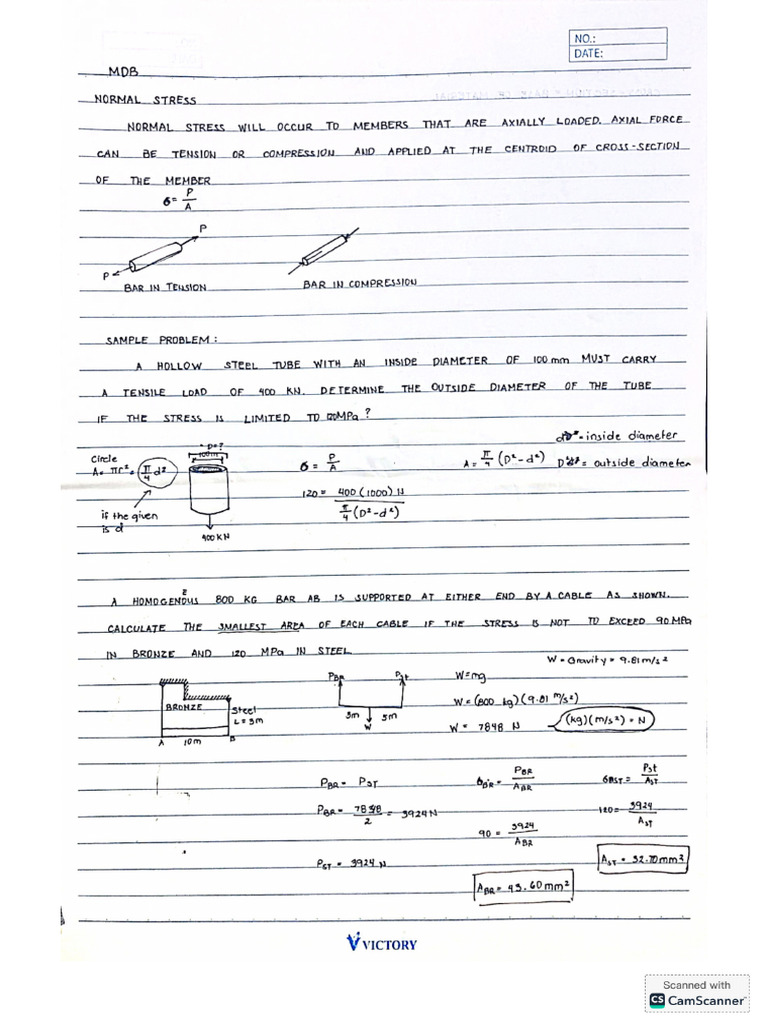 NO.:
DATE:
MDB
NORMAL STRESS
NORMAL STRESS WILL OCCUR TO MEMBERS THAT ARE AXIALLY LOADED. AXIAL FORCE
CAN BE TENSION OR COMPRESSION AND APPLIED AT THE CENTROID OF CROSS-SECTION
OF THE MEMBER
σ = P/A
P
P
BAR IN TENSION
BAR IN COMPRESSION
SAMPLE PROBLEM:
A HOLLOW STEEL TUBE WITH AN INSIDE DIAMETER OF 100 mm MUST CARRY
A TENSILE LOAD OF 400 KN. DETERMINE THE OUTSIDE DIAMETER OF THE TUBE
IF THE STRESS IS LIMITED TO 120MPa?
Circle
A = πr² = π/4 d²
if the given
is d
D=?
100mm
400 KN
σ = P/A
120 = 400(1000) N / π/4 (D²-d²)
A = π/4 (D²-d²)
= inside diameter
= outside diameter
A HOMOGENEOUS 800 KG BAR AB IS SUPPORTED AT EITHER END BY A CABLE AS SHOWN.
CALCULATE THE SMALLEST AREA OF EACH CABLE IF THE STRESS IS NOT TO EXCEED 90 MPa
IN BRONZE AND 120 MPa IN STEEL
W = Gravity = 9.81 m/s²
BRONZE
Steel
L = 3m
A
10m
B
PBR
Pst
5m
5m
W
W=mg
W= (800 kg)(9.81 m/s²)
W = 7848 N
(kg)(m/s²) = N
PBR = PST
PBR = 7848/2 = 3924 N
PST = 3924 N
σBR = PBR/ABR
90 = 3924/ABR
ABR = 43.60 mm²
σST = Pst/AST
120 = 3924/AST
AST = 32.70 mm²
VICTORY
Scanned with
CS CamScanner